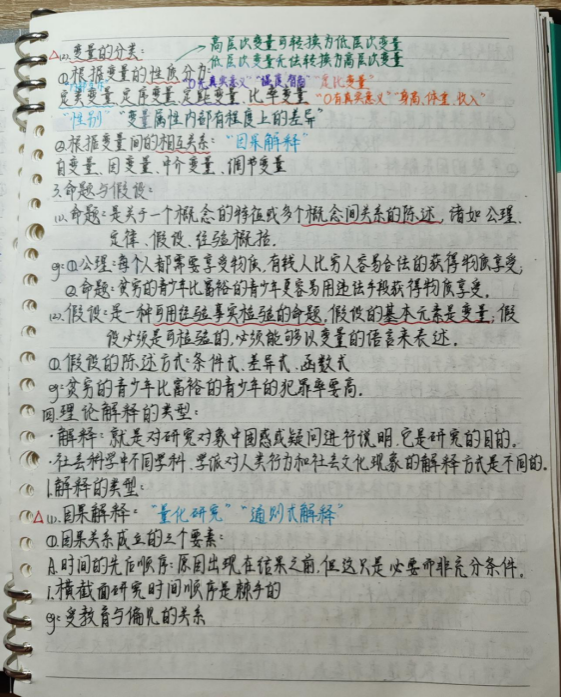 △(1).变量的分类:
高层次变量可转换为低层次变量
低层次变量无法转换为高层次变量
①根据变量的性质分为:
"0无真实意义" "温度,智商" "定比变量"
定类变量、定序变量、定距变量、比率变量 "0有真实意义" "身高、体重、收入"
"性别" "变量属性内部有程度上的差异"
②根据变量间的相互关系: "因果解释"
自变量、因变量、中介变量、调节变量
3.命题与假设:
(1).命题:是关于一个概念的特征或多个概念间关系的陈述,诸如公理、
定律、假设、经验概括.
eg:①公理:每个人都需要享受物质,有钱人比穷人容易合法的获得物质享受,
②命题:贫穷的青少年比富裕的青少年更容易用违法手段获得物质享受.
(2).假设:是一种可用经验事实检验的命题,假设的基本元素是变量;假
设必须是可检验的,必须能够以变量的语言来表述.
①.假设的陈述方式:条件式、差异式、函数式
eg:贫穷的青少年比富裕的青少年的犯罪率要高.
四.理论解释的类型:
·解释:就是对研究对象中困惑或疑问进行说明.它是研究的目的.
·社会科学中不同学科、学派对人类行为和社会文化现象的解释方式是不同的.
1.解释的类型:
△(1).因果解释: "量化研究" "通则式解释"
①因果关系成立的三个要素:
A.时间的先后顺序:原因出现在结果之前.但这只是必要而非充分条件.
1.横截面研究时间顺序是棘手的
eg:受教育与偏见的关系